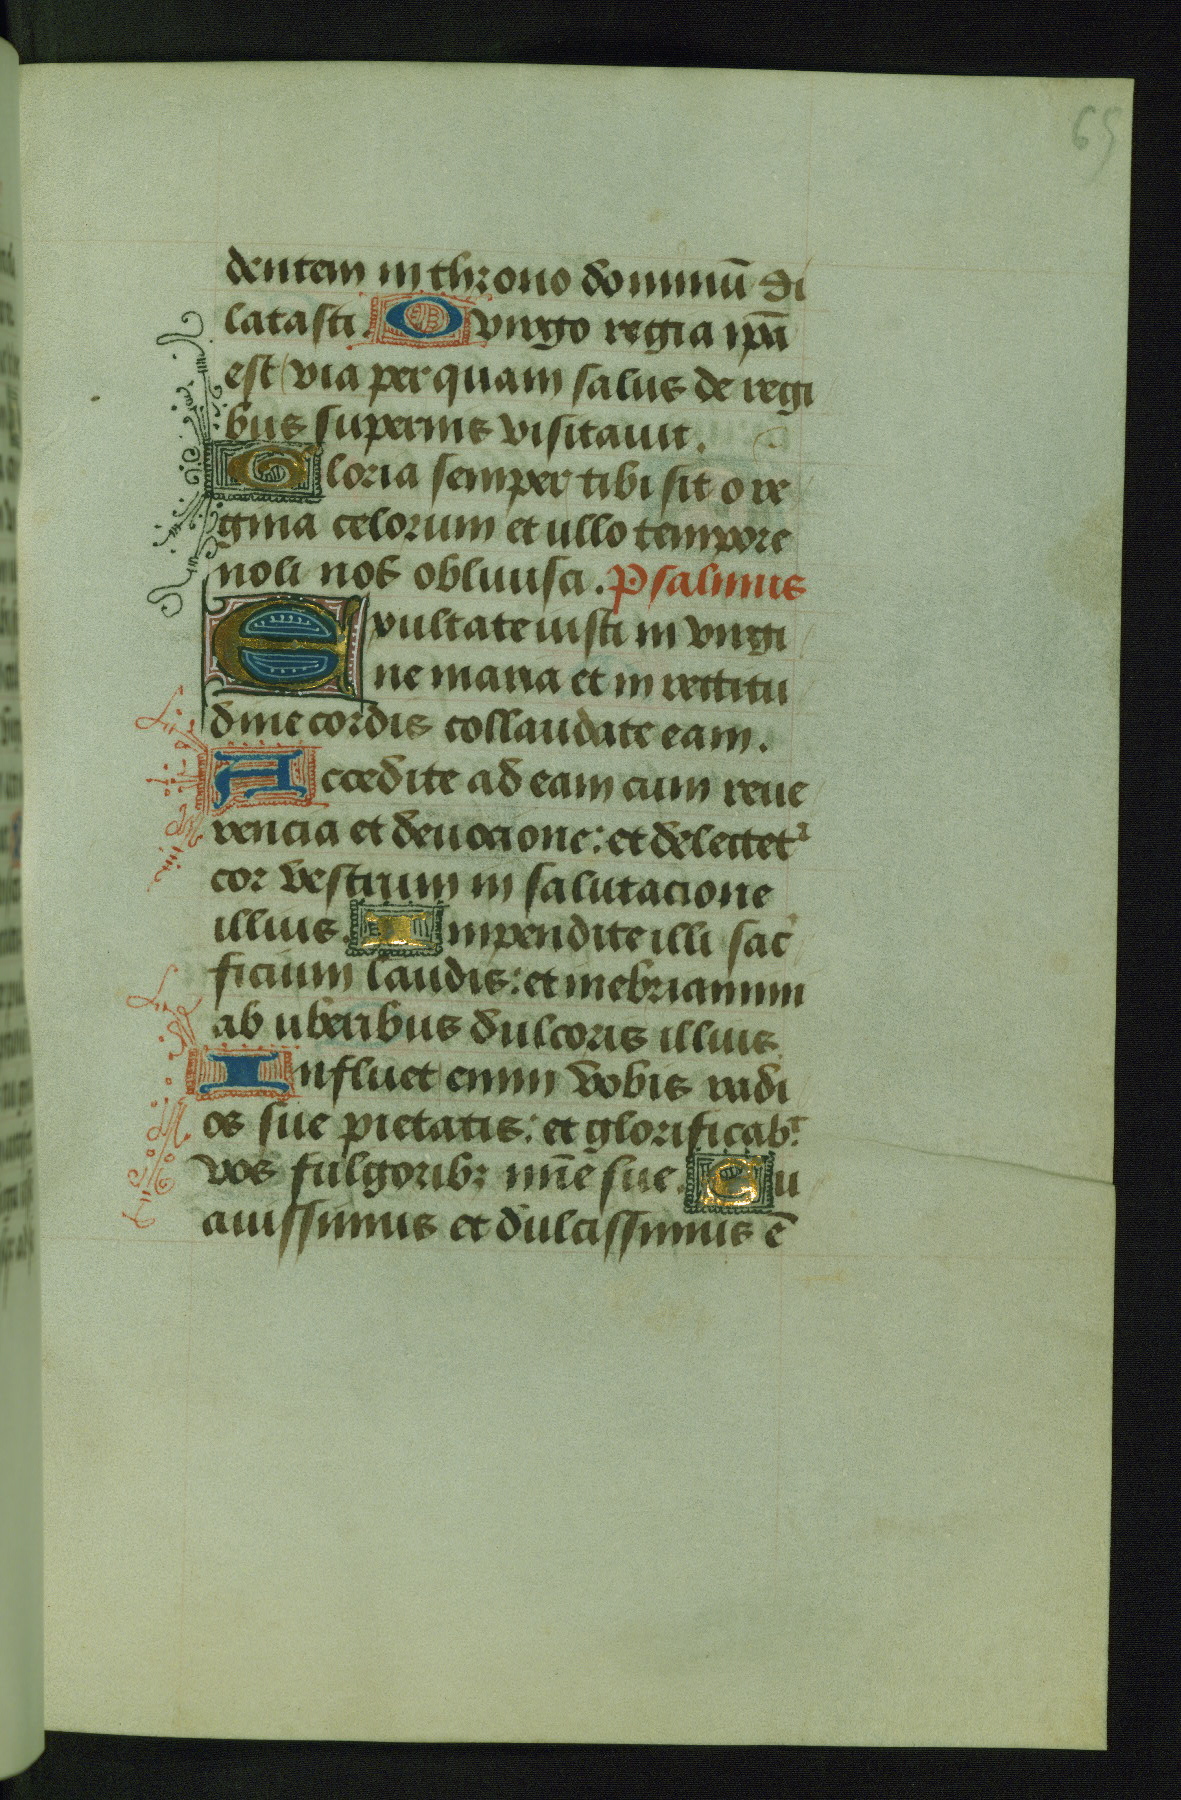 65
dentem in throno dominū di
latasti. O virgo regia ip̄a
est via per quam salus de regi
bus supernis visitauit.
Gloria semper tibi sit o re
gina celorum et ullo tempore
noli nos obliuisci. Psalmus
Exultate iusti in virgi
ne maria et in rectitu
dine cordis collaudate eam.
Accedite ad eam cum reue
rencia et deuocione: et delectet᷑
cor vestrum in salutacione
illius. Impendite illi sac̓
ficium laudis: et inebriamini
ab uberibus dulcoris illius
Influet enim vobis radi
os sue pietatis: et glorificab᷑
vos fulgorib; mīe sue. Su
auissimus et dulcissimus ē